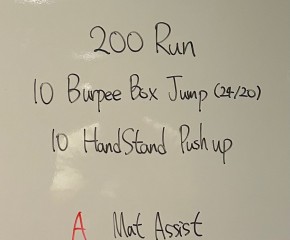 200 Run
10 Burpee Box Jump (24/20)
10 HandStand Push up
A Mat Assist